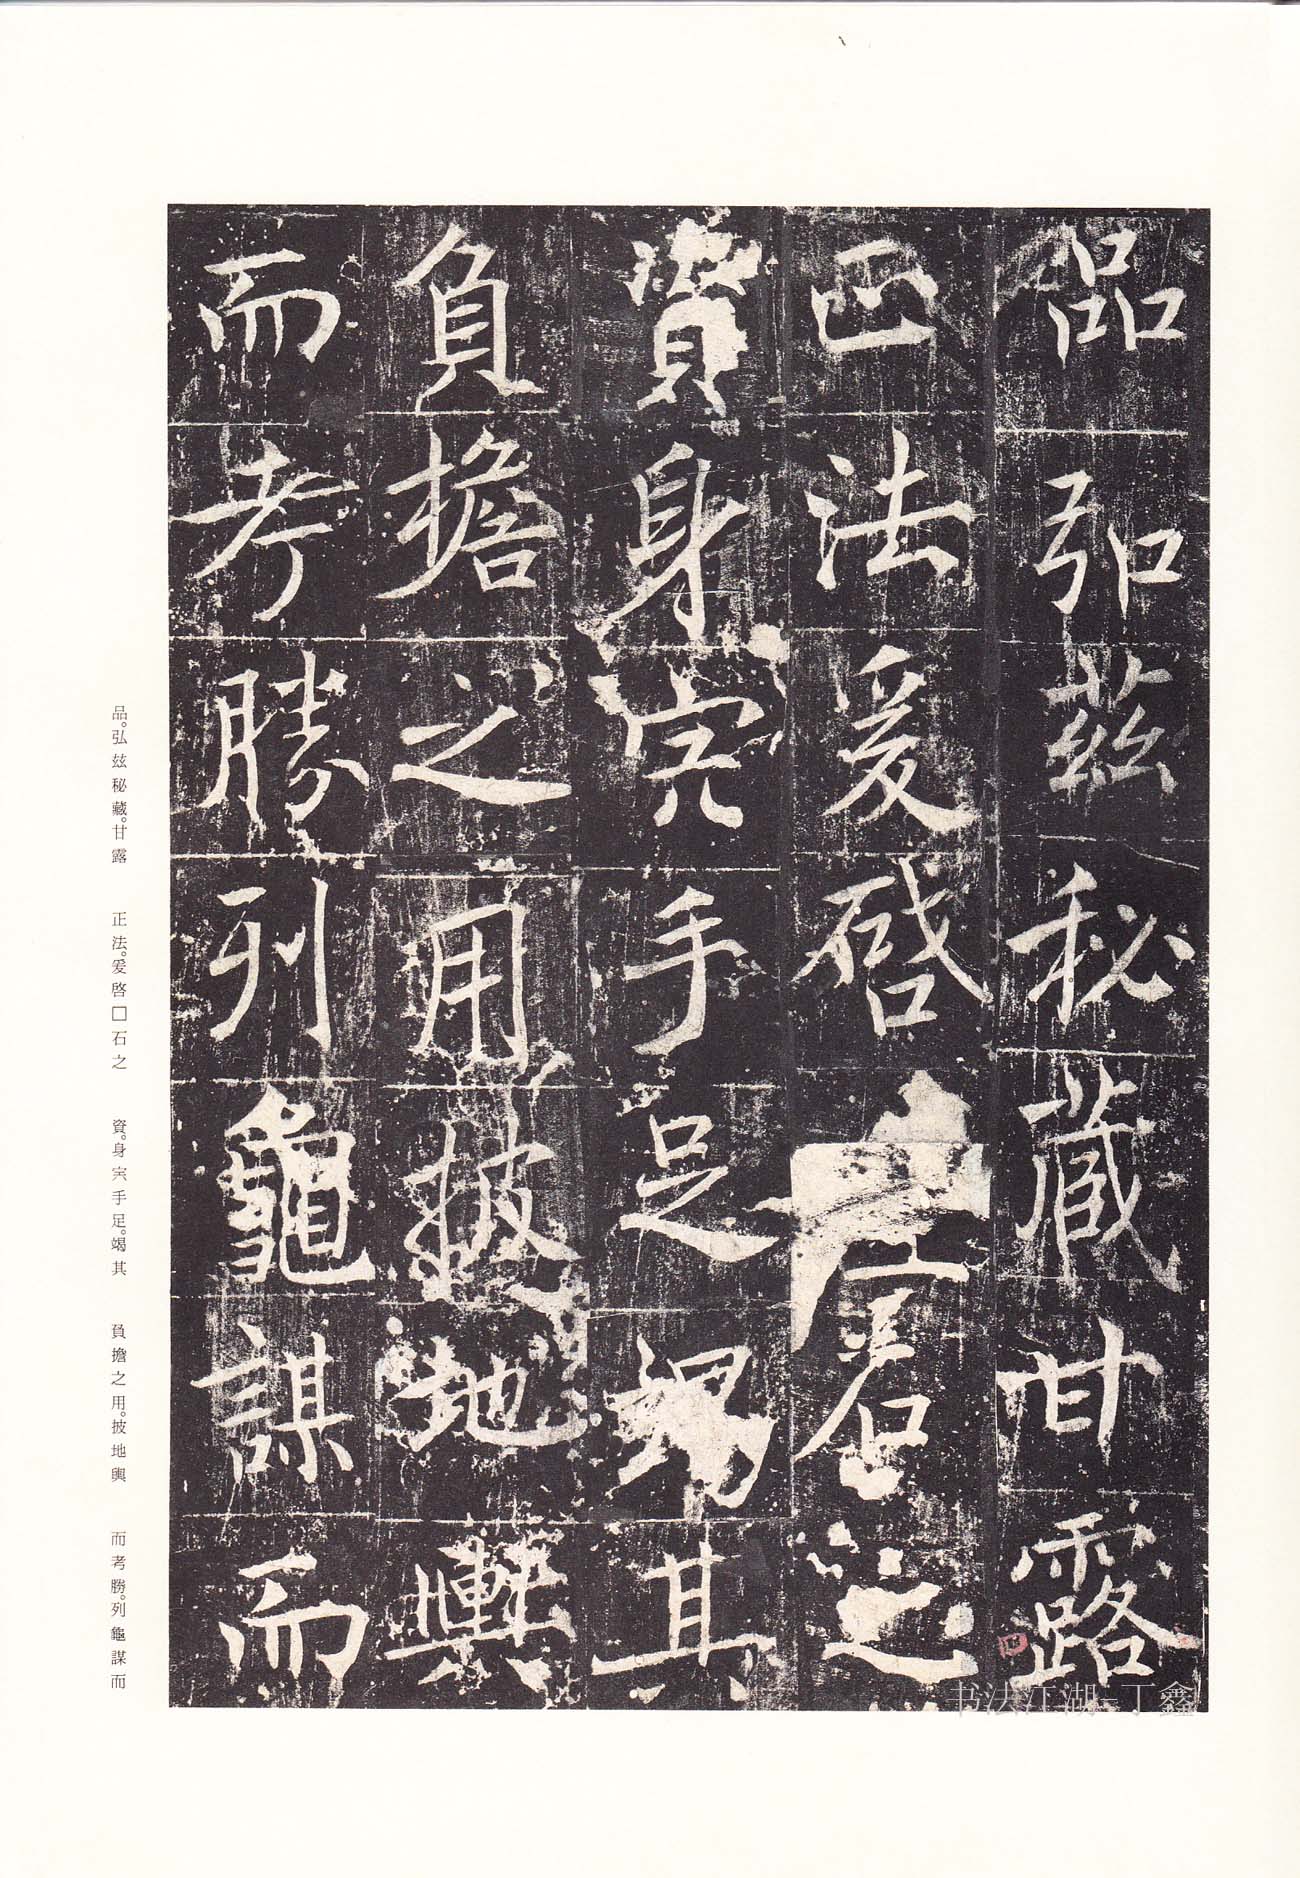 品弘茲秘藏甘露
正法爰啓石之
資身宍手足竭其
負擔之用披地輿
而考勝列龜謀而
品。弘玆秘藏。甘露
正法。爰啓□石之
資。身宍手足。竭其
負擔之用。披地輿
而考勝。列龜謀而
书法江湖-丁鑫